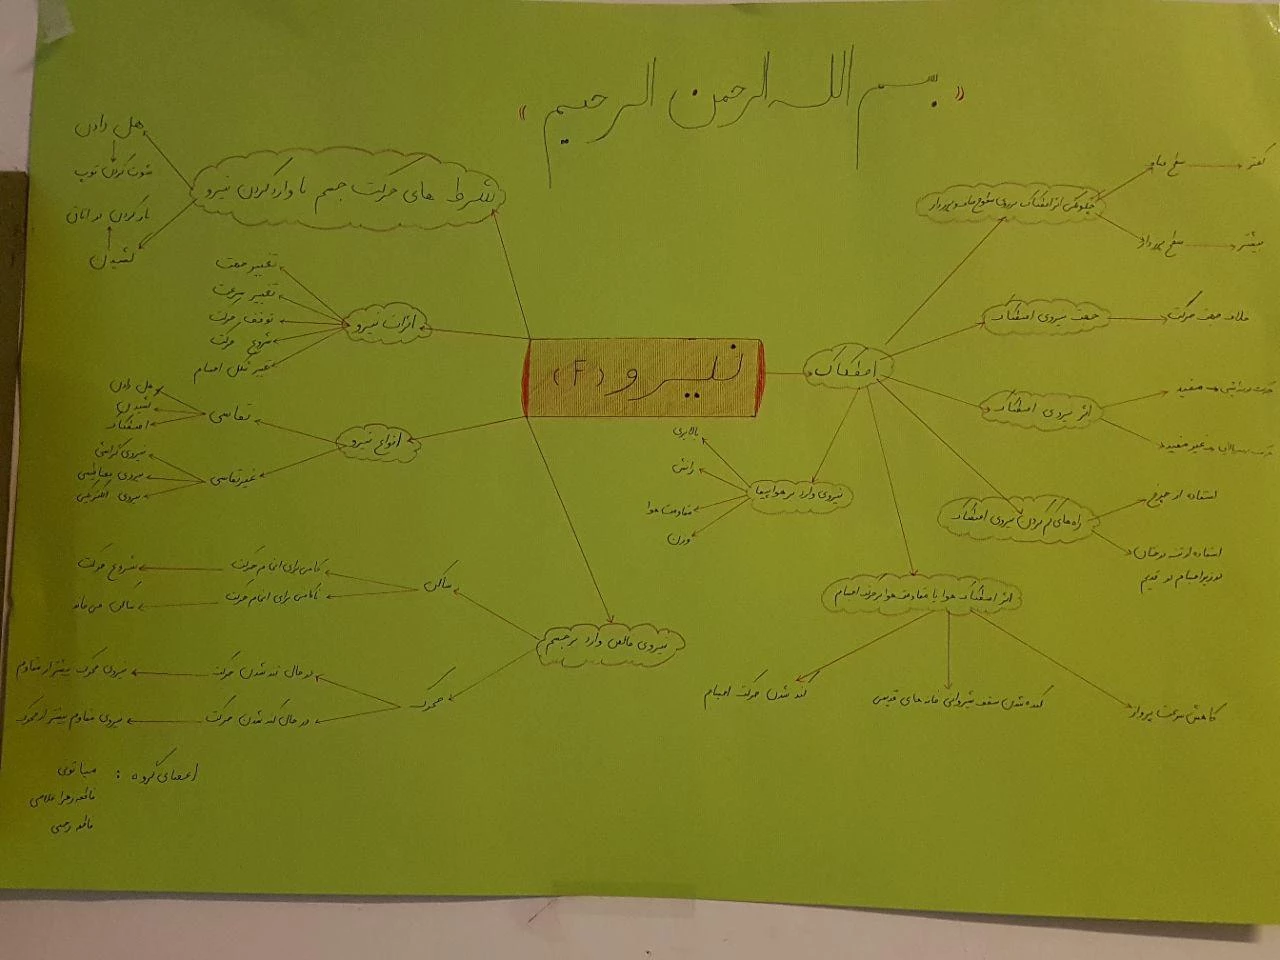 « بسم الله الرحمن الرحیم »
نیرو (F)
شرط های حرکت جسم با وارد کردن نیرو
هل دادن
شوت کردن توپ
کشیدن
باز کردن در اتاق
اثرات نیرو
تغییر جهت
تغییر سرعت
توقف حرکت
شروع حرکت
تغییر شکل اجسام
انواع نیرو
تماسی
هل دادن
کشیدن
اصطکاک
غیرتماسی
نیروی گرانشی
نیروی مغناطیسی
نیروی الکتریکی
نیروی خالص وارد بر جسم
ساکن
کافی برای انجام حرکت
شروع حرکت
ناکافی برای انجام حرکت
ساکن می ماند
متحرک
در حال تند شدن حرکت
نیروی محرک بیشتر از مقاوم
در حال کند شدن حرکت
نیروی مقاوم بیشتر از محرک
اصطکاک
چگونگی اثر اصطکاک بر روی سطوح صاف و پرزدار
سطح صاف
کمتر
سطح پرزدار
بیشتر
جهت نیروی اصطکاک
خلاف جهت حرکت
اثر نیروی اصطکاک
مفید
غیر مفید
راه های کم کردن نیروی اصطکاک
استفاده از چرخ
استفاده از تنه درختان
در زیر اجسام در قدیم
اثر اصطکاک هوا یا مقاومت هوا بر چند اجسام
کاهش سرعت پرواز
کنده شدن سقف شیروانی خانه های قدیمی
کند شدن حرکت اجسام
نیروی وارد بر هواپیما
بالابری
رانش
مقاومت هوا
وزن
اعضای گروه :